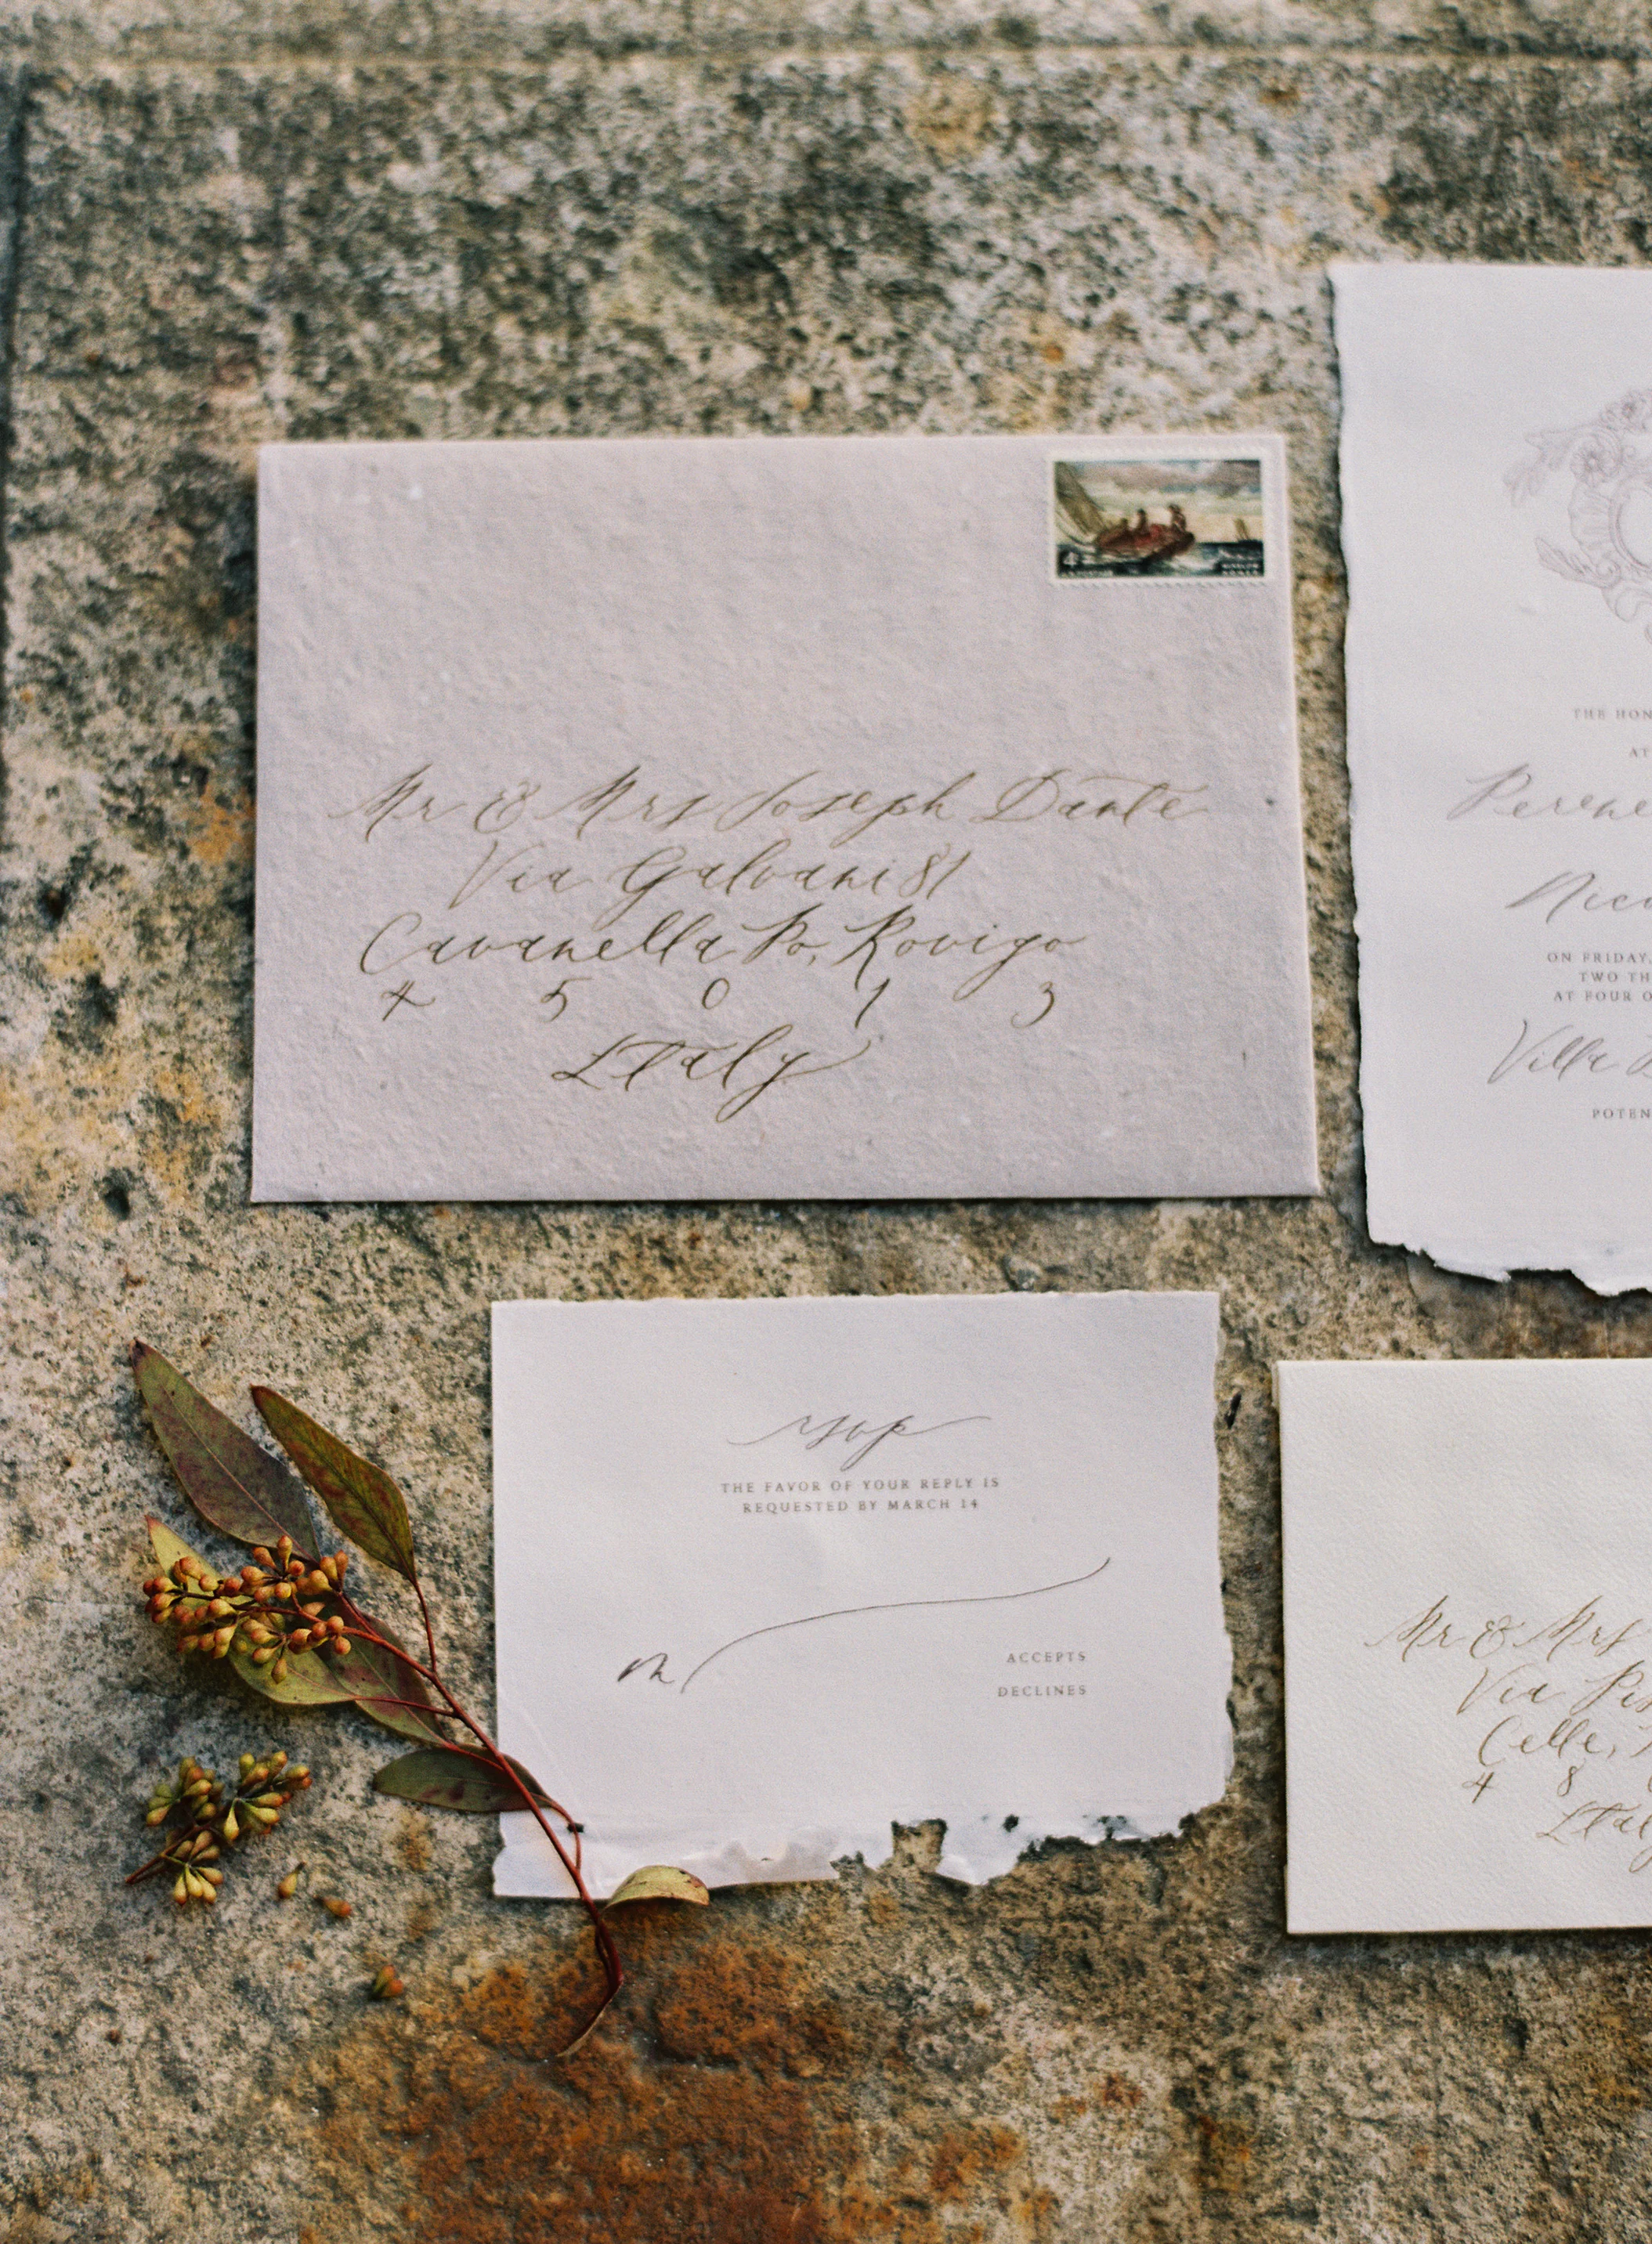 4¢
Mr & Mrs Joseph Dante
Via Galvani 81
Cavanella Po, Rovigo
4 5 0 1 3
Italy
THE HON
AT
ON FRIDAY,
TWO TH
AT FOUR O
Villa
POTEN
rsvp
THE FAVOR OF YOUR REPLY IS
REQUESTED BY MARCH 14
m
ACCEPTS
DECLINES
Mr & Mrs
Via
Celle,
4 8